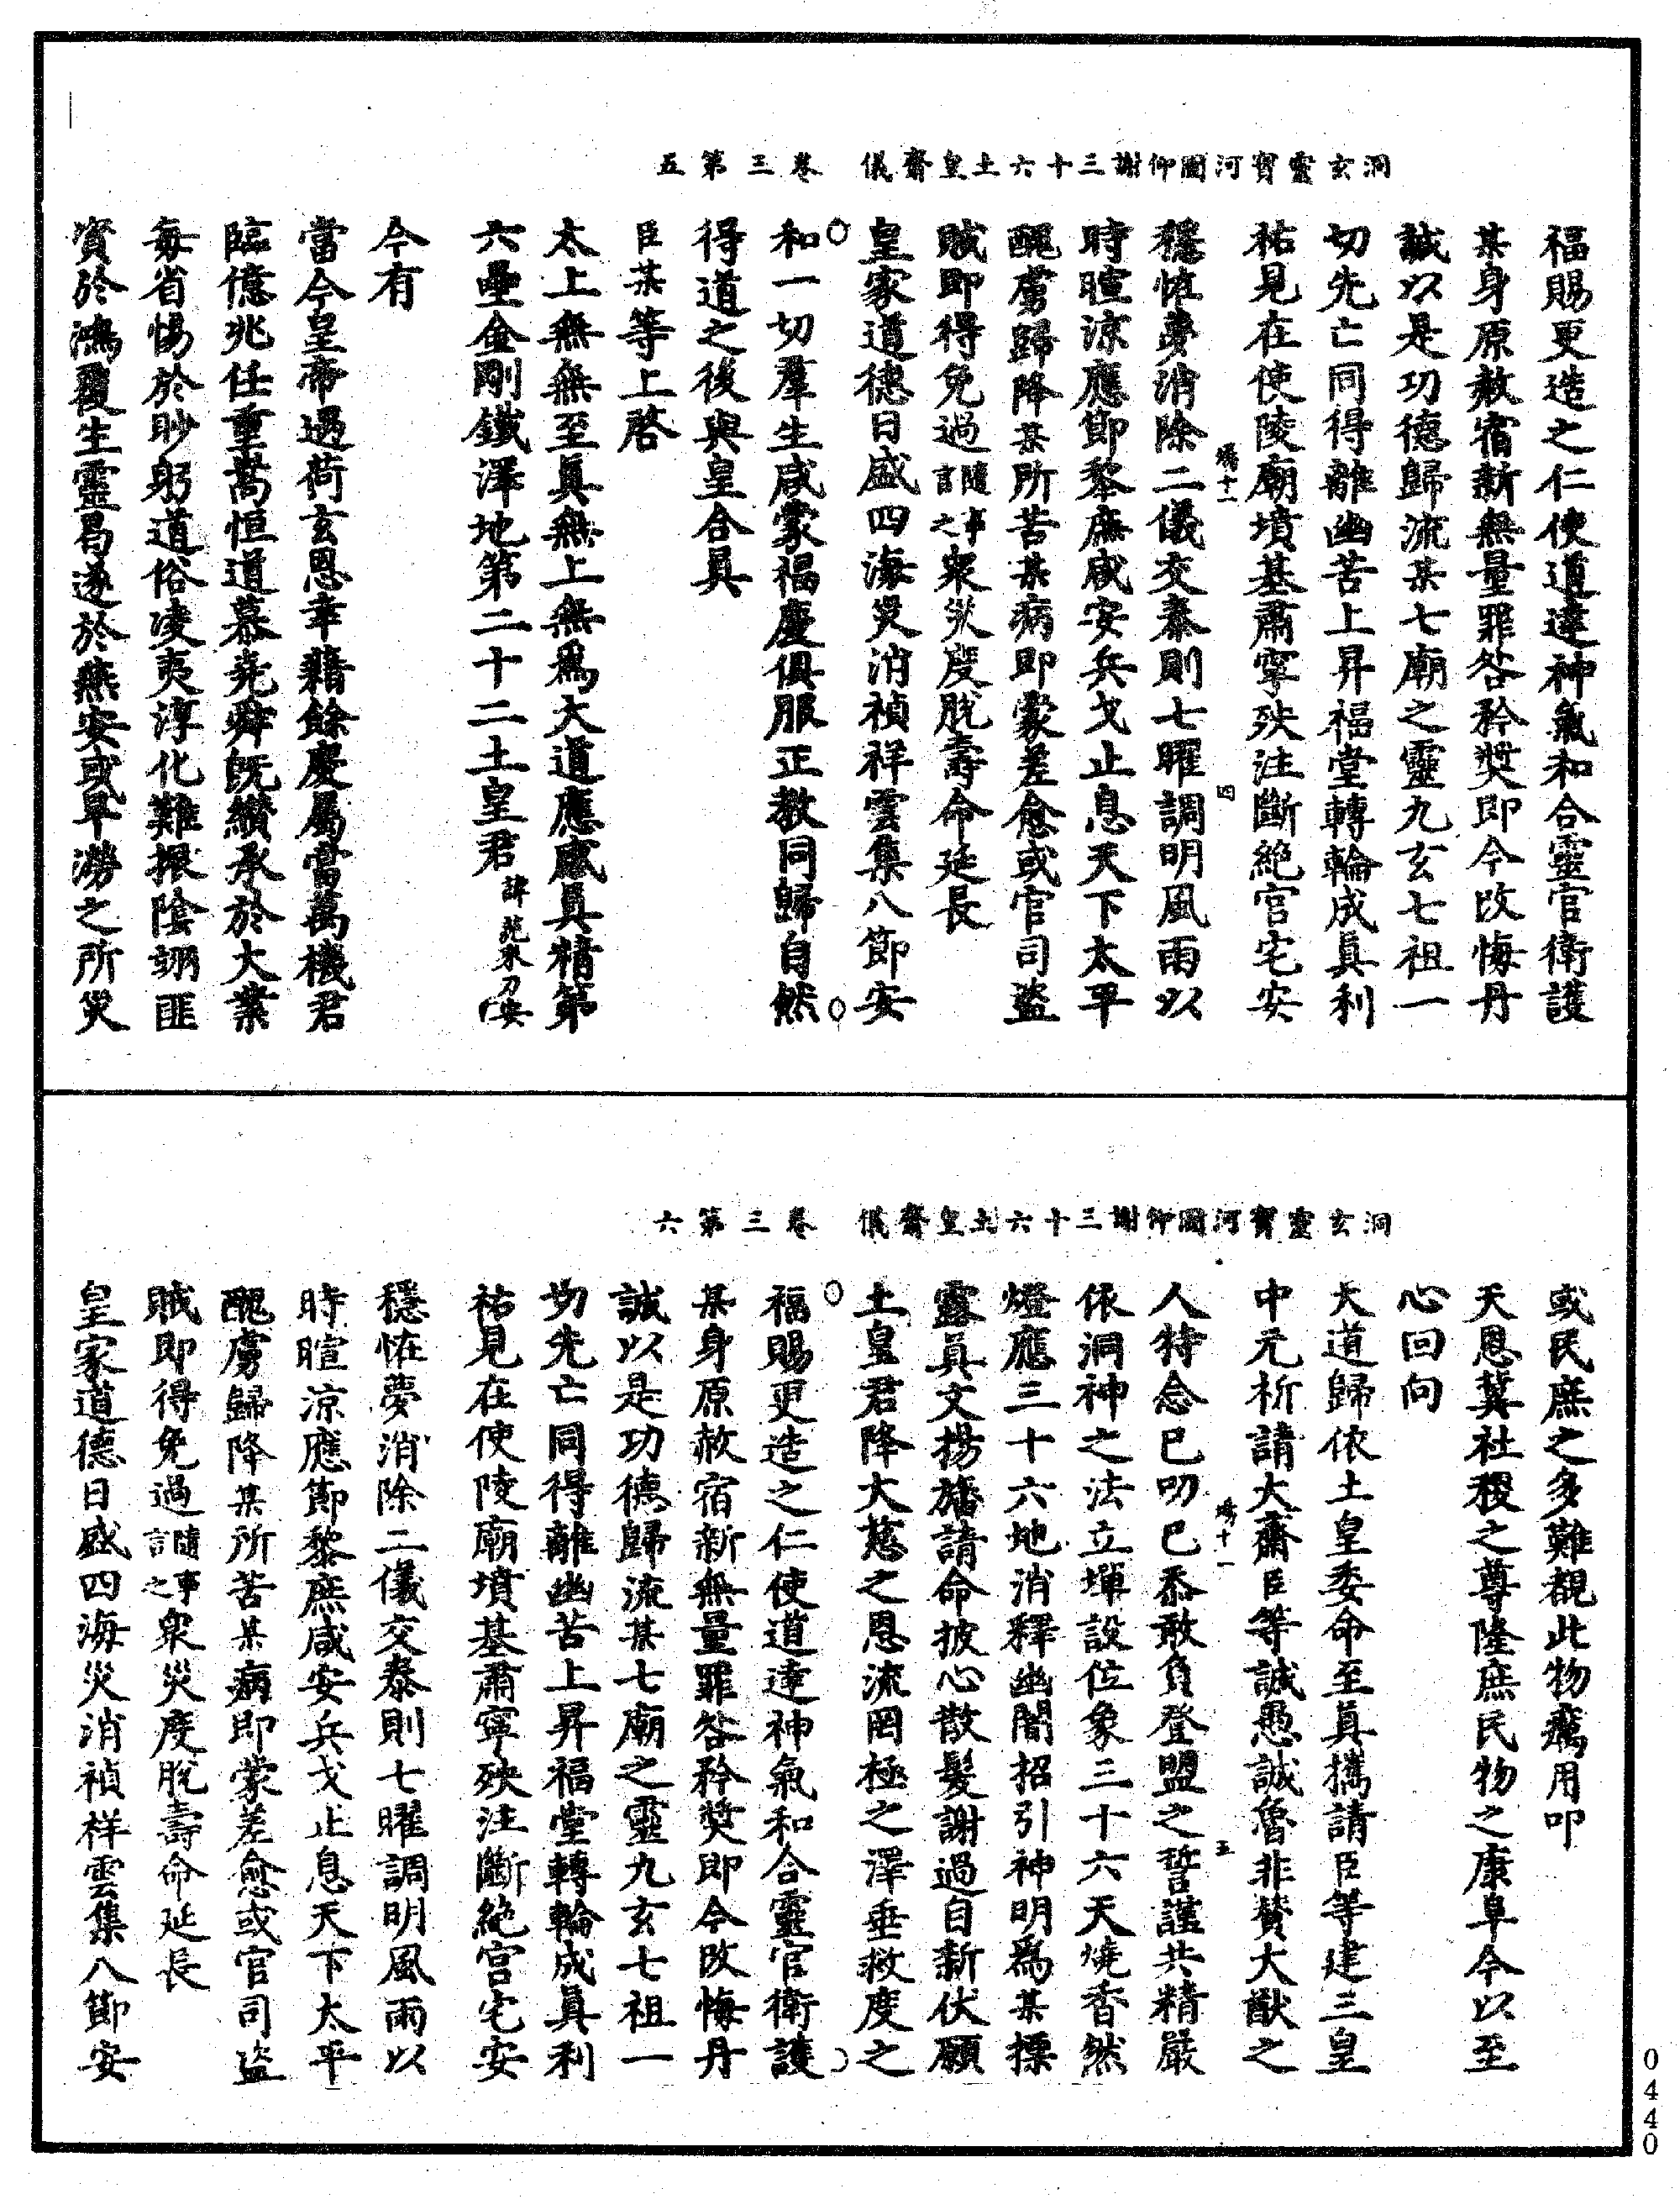 洞玄靈寶河圖仰謝三十六土皇齋儀　卷三第五
福賜更造之仁使道達神氣和合靈官衛護
某身原赦宿新無量罪咎矜奬即今改悔丹
誠以是功德歸流某七廟之靈九玄七祖一
切先亡同得離幽苦上昇福堂轉輪成眞利
祐見在使陵廟墳基肅寧殃注斷絶宫宅安
穩恠夢消除二儀交泰則七曜調明風雨以
時暄涼應節黎庶咸安兵戈止息天下太平
醜虜歸降某所苦某病即蒙差愈或官司盗
賊即得免過隨事言之衆災度脫壽命延長
皇家道德日盛四海災消禎祥雲集八節安
和一切羣生咸蒙福慶俱服正教同歸自然
得道之後與皇合眞
臣某等上啓
太上無無至眞無上無爲大道應感眞精第
六壘金剛鐵澤地第二十二土皇君諱
今有
當今皇帝過荷玄恩幸藉餘慶屬當萬機君
臨億兆任重嵩恒道慕堯舜旣纘承於大業
每省惕於眇躬道俗凌夷淳化難振陰翊匪
資於鴻覆生靈曷遂於無安或旱澇之所災
洞玄靈寶河圖仰謝三十六土皇齋儀　卷三第六
或民庶之多難覩此物癘用叩
天恩冀社稷之尊隆庶民物之康阜今以至
心回向
大道歸依土皇委命至眞攜請臣等建三皇
中元祈請大齋臣等誠愚誠魯非賛大猷之
人特念已叨已忝敢負登盟之誓謹共精嚴
依洞神之法立墠設位象三十六天燒香然
燈應三十六地消釋幽闇招引神明爲某摽
露眞文揚旛請命披心散髮謝過自新伏願
土皇君降大慈之恩流罔極之澤垂救度之
福賜更造之仁使道達神氣和合靈官衛護
某身原赦宿新無量罪咎矜奬即今改悔丹
誠以是功德歸流某七廟之靈九玄七祖一
切先亡同得離幽苦上昇福堂轉輪成眞利
祐見在使陵廟墳基肅寧殃注斷絶宫宅安
穩恠夢消除二儀交泰則七曜調明風雨以
時暄涼應節黎庶咸安兵戈止息天下太平
醜虜歸降某所苦某病即蒙差愈或官司盗
賊即得免過隨事言之衆災度脫壽命延長
皇家道德日盛四海災消禎祥雲集八節安
0440